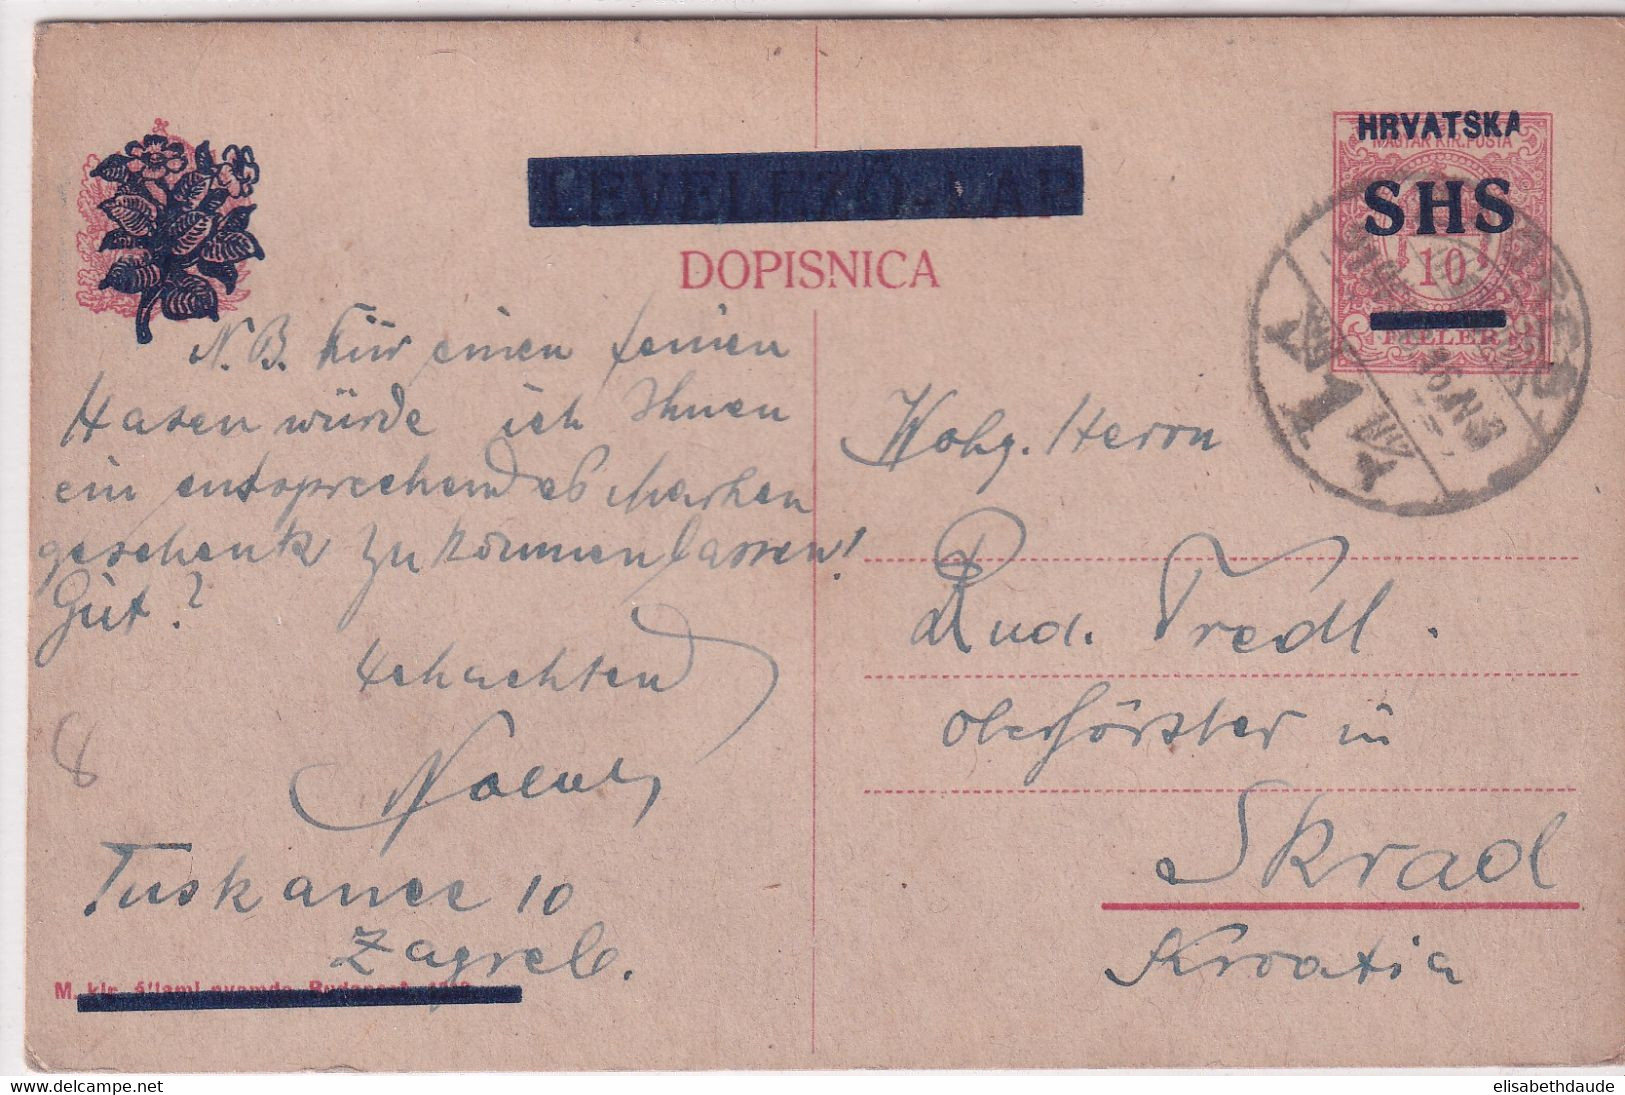 HRVATSKA
MAGYAR KIR. POSTA
SHS
10
FILLÉR
LEVELEZŐ-LAP
DOPISNICA
N.B. Für einen feinen
Hasen würde ich Ihnen
ein entsprechendes Marken
geschenk zukommen lassen!
Gut?
Wohg. Herrn
Rud. Tredl.
Oberförster in
Skrad
Kroatia
Tuskanec 10
Zagreb.
M. kir. állami nyomda. Budapest. 1918
www.delcampe.net
elisabethdaude